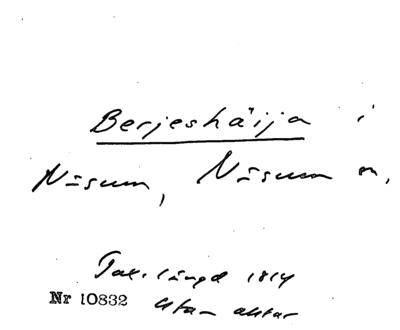 Berjeshäija i
Näsum, Näsum sn,
Tax. längd 1814
Nr 10832 utan aktar